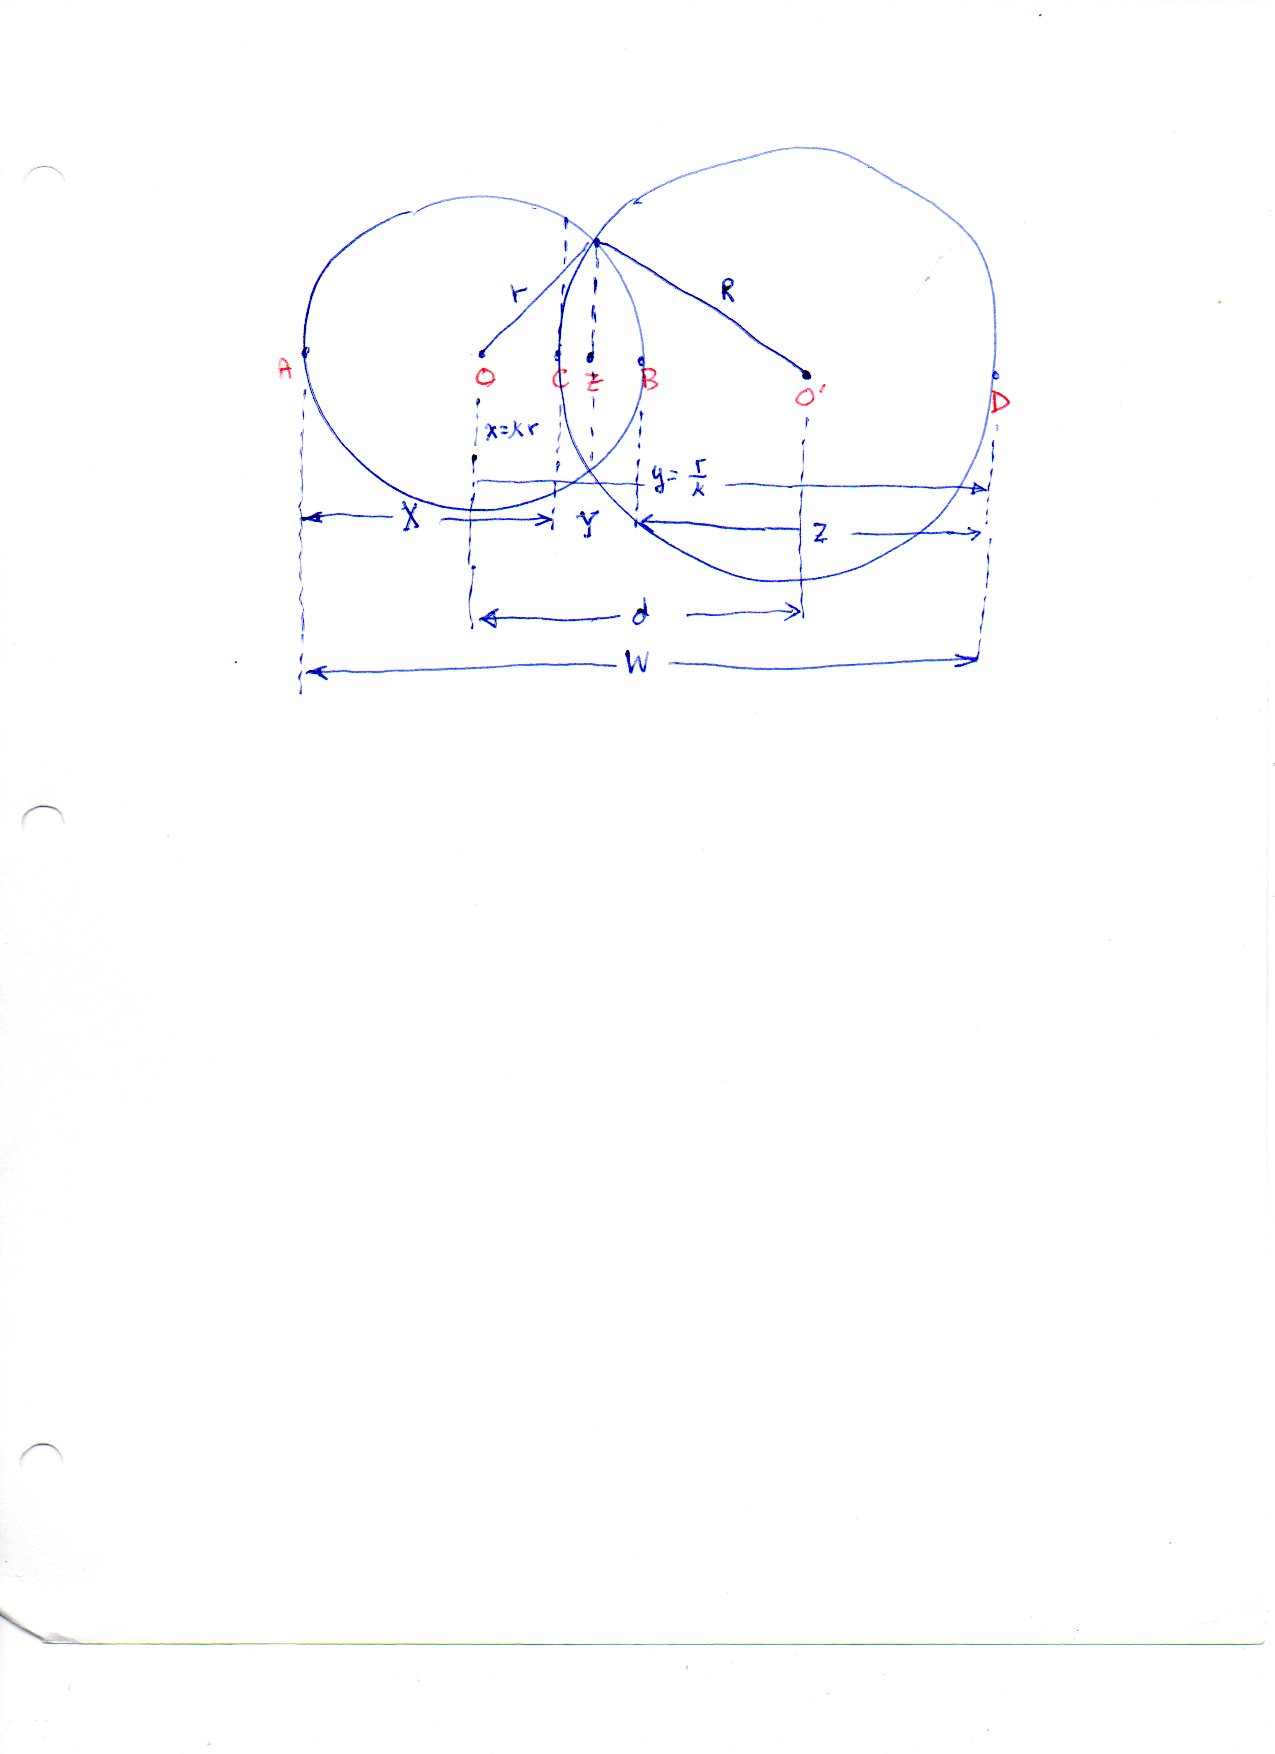 r R
A O C E B O' D
x=kr
y= r/k
X Y Z
d
W